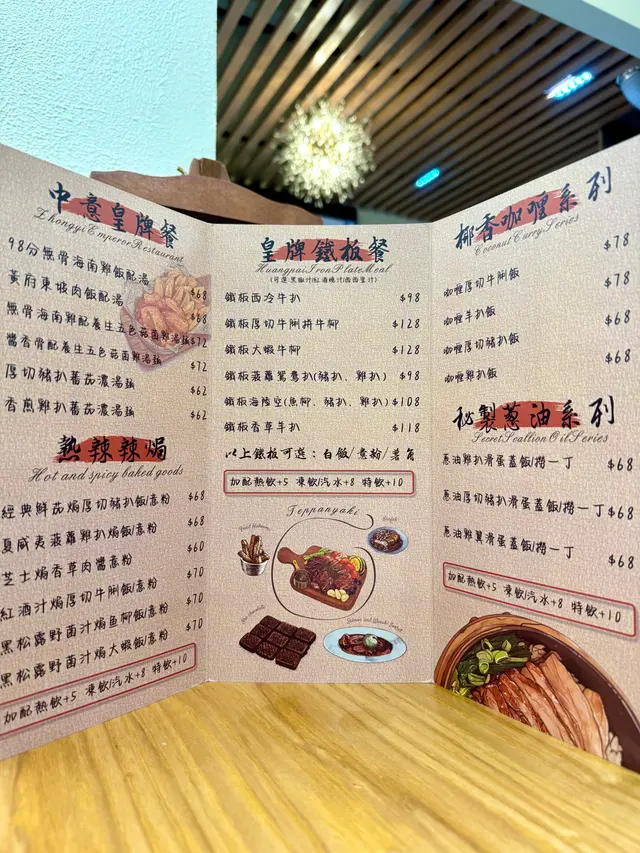 中意皇牌餐
ZhongyiEmperorRestaurant
98分無骨海南雞飯配湯
黃府東坡肉飯配湯 $68
無骨海南雞配養生五色菇菌雞湯麵 $72
醬香骨配養生五色菇菌雞湯麵 $72
厚切豬扒蕃茄濃湯麵 $62
香煎雞扒蕃茄濃湯麵 $62
熱辣辣焗
Hot and spicy baked goods
經典鮮茄焗厚切豬扒飯/意粉 $68
夏威夷菠蘿雞扒焗飯/意粉 $68
芝士焗香草肉醬意粉 $60
紅酒汁焗厚切牛脷飯/意粉 $70
黑松露野菌汁焗魚柳飯/意粉 $70
黑松露野菌汁焗大蝦飯/意粉 $70
加配熱飲+5 凍飲/汽水+8 特飲+10
皇牌鐵板餐
HuangpaiIronPlateMeal
鐵板西冷牛扒 $98
鐵板厚切牛脷拼牛柳 $128
鐵板大蝦牛柳 $128
鐵板菠蘿鴛鴦扒(豬扒、雞扒) $98
鐵板海陸空(魚柳、豬扒、雞扒) $108
鐵板香草羊扒 $118
以上鐵板可選：白飯/意粉/薯角
加配熱飲+5 凍飲/汽水+8 特飲+10
Teppanyaki
椰香咖喱系列
Coconut Curry Series
咖喱厚切牛脷飯 $78
咖喱羊扒飯 $78
咖喱厚切豬扒飯 $68
咖喱雞扒飯 $68
秘製蔥油系列
SecretScallionOilSeries
蔥油雞扒滑蛋蓋飯/撈一丁 $68
蔥油厚切豬扒滑蛋蓋飯/撈一丁 $68
蔥油雞翼滑蛋蓋飯/撈一丁 $68
加配熱飲+5 凍飲/汽水+8 特飲+10